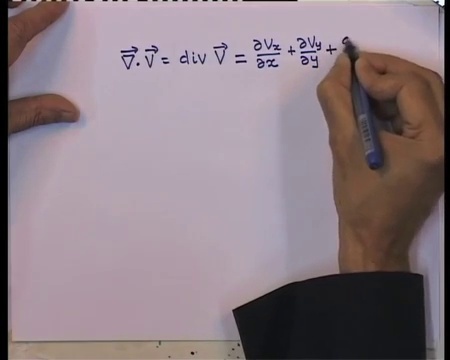 ∇⃗ · V⃗ = div V⃗ = ∂Vx/∂x + ∂Vy/∂y +